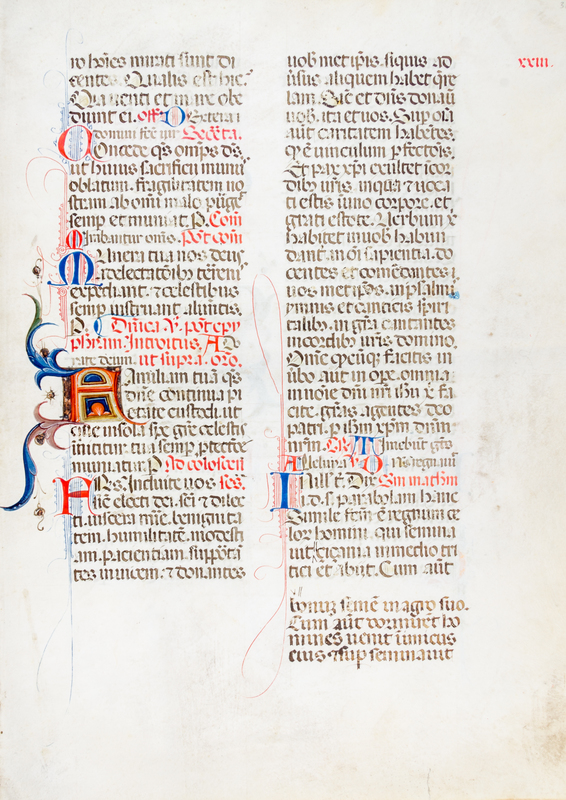 xxiii.
ro ho͞ies mirati sunt di
centes. Qualis est hic.
Quia uenti et mare obe
diunt ei. off. Dextera
domini fec̄ uir Sec̄eta.
Concede q̄s omp̄s d͞s
ut huius sacrificii munus
oblatum. fragilitatem no
stram ab om̄i malo purget
semp et muniat. P. Com̄
Mirabantur om̄s. post com̄
Munera tua nos deus
a delectatōibꝫ terreni
expediant. ⁊ celestibus
semp instruant alim̄tis.
P. Dn̄ica v. post epy
phaniam. Introitus. Ado
rate deum. ut supra. oro.
Familiam tuā q̄s
dn̄e continua pi
etate custodi. ut
que in sola spe gr̄e celestis
innititur. tua semp ptectōe
muniatur. P. Ad colosceñ
Frēs. Induite uos
electi dei. sc̄i ⁊ dilec
ti. uiscera mīe. benignita
tem. humilitatē. modesti
am. pacientiam. supportā
tes inuicem. ⁊ donantes
uob met ip̄is. siquis ad
ūsus aliquem habet q̄re
lam. Sic̄ et dn̄s donau̅
uob. ita et uos. Sup om̄a
aūt caritatem habete.
q̄ ē uinculum pfectōis.
Et pax xp̄i exultet i cor
dibꝫ ur̄is. in qua ⁊ uoca
ti estis i uno corpore. et
grati estote. Uerbum x̄
habitet in uob habun
dant. in om̄i sapientia. do
centes et com̄onentes
uos met ip̄os. in psalmis
ymnis et canticis spiri
talibꝫ. in gr̄a cantantes
in cordibꝫ ur̄is domino.
Om̄e q̄cūqꝫ facitis in
ūbo aut in ope. omnia
in noīe dn̄i nr̄i ih̄u x̄ fa
cite. gr̄as agentes deo
patri. p ih̄m xp̄m dn̄m
nr̄m. Gr̄. Timebunt gn̄tes
Alleluia. V. Dn̄s regnauit
In ill. t. Dix. Scd̄m math̄m
ih̄s. d. s. parabolam hanc
Simile fcm̄ ē regnum ce
lorum homini. qui semina
uit
tici et abiit. Cum aūt
bonum sem̄ē in agro suo.
Cum aūt dormirēt ho
mines uenit inimicus
eius ⁊ sup seminauit